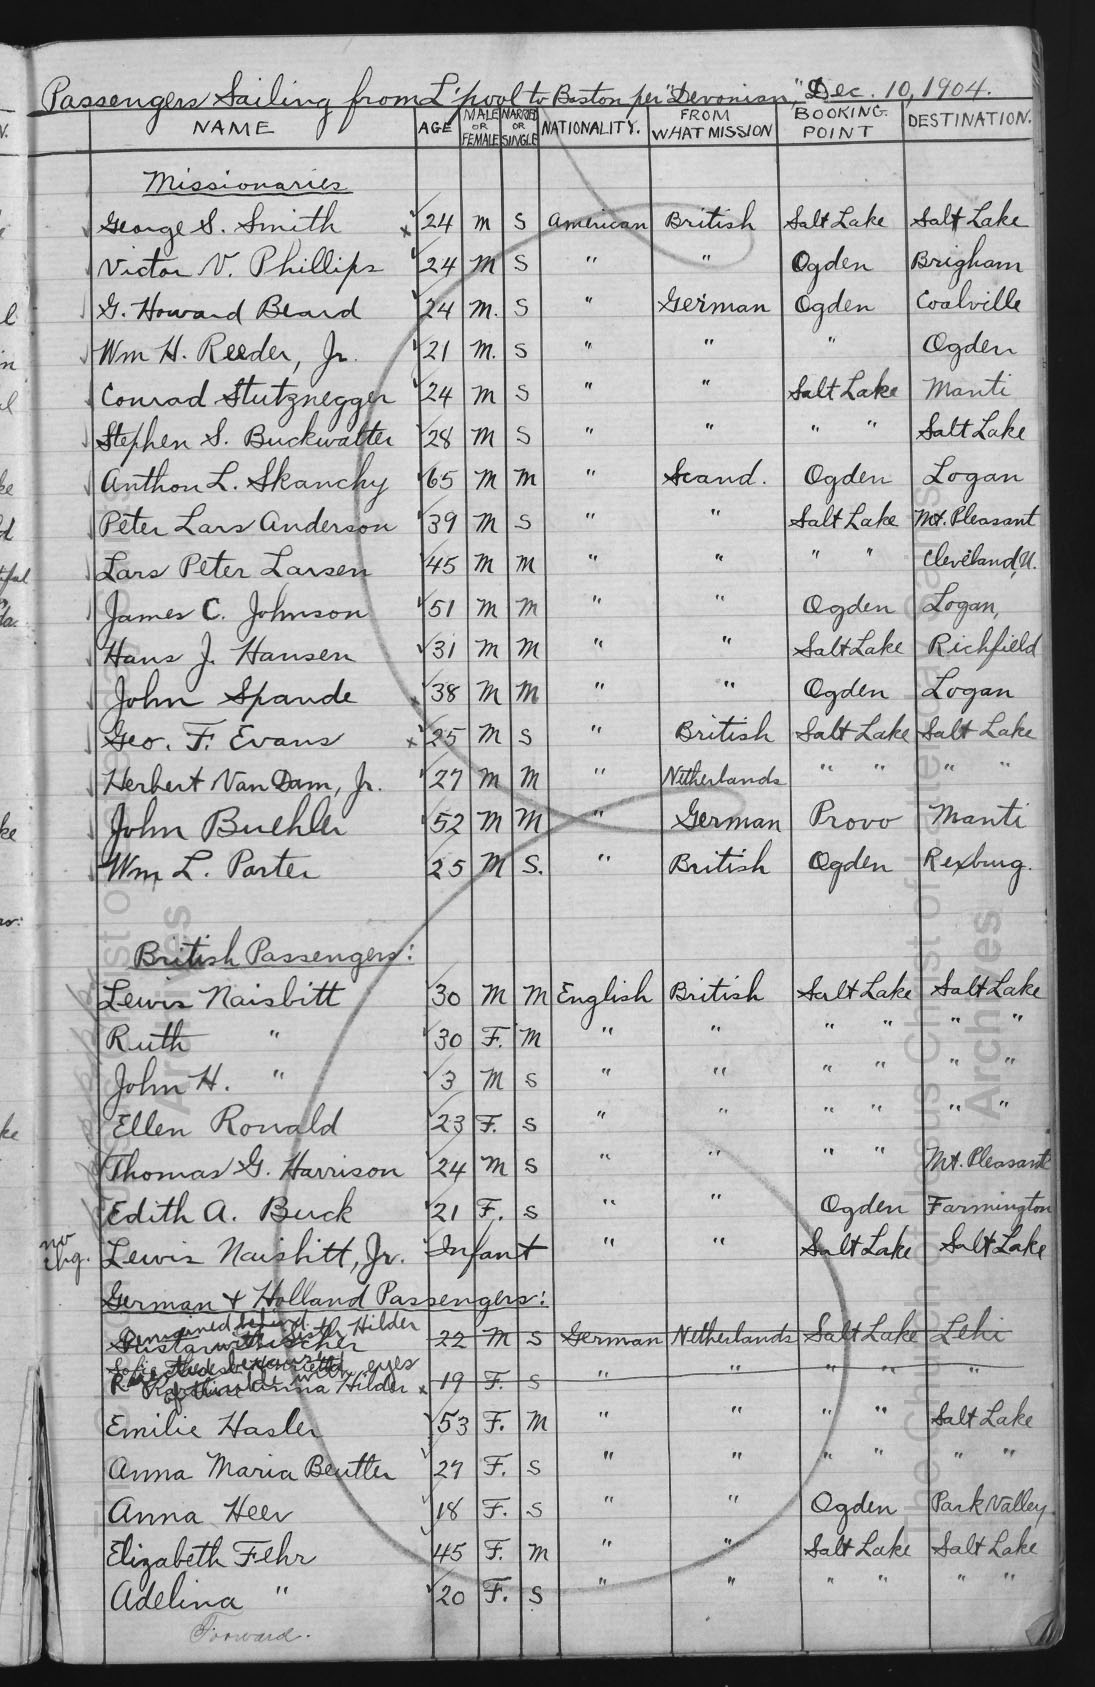 Passengers Sailing from L'pool to Boston per "Devonian," Dec. 10, 1904.
NAME AGE MALE OR FEMALE MARRIED OR SINGLE NATIONALITY. FROM WHAT MISSION BOOKING POINT DESTINATION.
Missionaries
George S. Smith x 24 m S American British Salt Lake Salt Lake
Victor V. Phillips 24 M S " " Ogden Brigham
G. Howard Beard 24 M. S " German Ogden Coalville
Wm H. Reeder, Jr. 21 M. S " " " Ogden
Conrad Stutznegger 24 M S " " Salt Lake Manti
Stephen S. Buckwalter 28 M S " " " " Salt Lake
Anthon L. Skanchy 65 M M " Scand. Ogden Logan
Peter Lars Anderson 39 M S " " Salt Lake Mt. Pleasant
Lars Peter Larsen 45 M M " " " " Cleveland, U.
James C. Johnson 51 M M " " Ogden Logan,
Hans J. Hansen 31 M M " " Salt Lake Richfield
John Spande 38 M M " " Ogden Logan
Geo. F. Evans x 25 M S " British Salt Lake Salt Lake
Herbert Van Dam, Jr. 27 M M " Netherlands " " " "
John Buehler 52 M M " German Provo Manti
Wm L. Porter 25 M S. " British Ogden Rexburg.
British Passengers:
Lewis Naisbitt 30 M M English British Salt Lake Salt Lake
Ruth " 30 F. M " " " " " "
John H. " 3 M S " " " " " "
Ellen Ronald 23 F. S " " " " " "
Thomas G. Harrison 24 M S " " " " Mt. Pleasant
Edith A. Buck 21 F. S " " Ogden Farmington
no chg. Lewis Naisbitt, Jr. Infant " " Salt Lake Salt Lake
German & Holland Passengers:
Remained behind with sister Hilder
22 M S German Netherlands Salt Lake Lehi
eyes
Anna Hilder x 19 F. S " " " " "
Emilie Hasler 53 F. M " " " " Salt Lake
Anna Maria Beutler 27 F. S " " " " " "
Anna Heer 18 F. S " " Ogden Park Valley
Elizabeth Fehr 45 F. M " " Salt Lake Salt Lake
Adelina " 20 F. S " " " " " "
Forward.